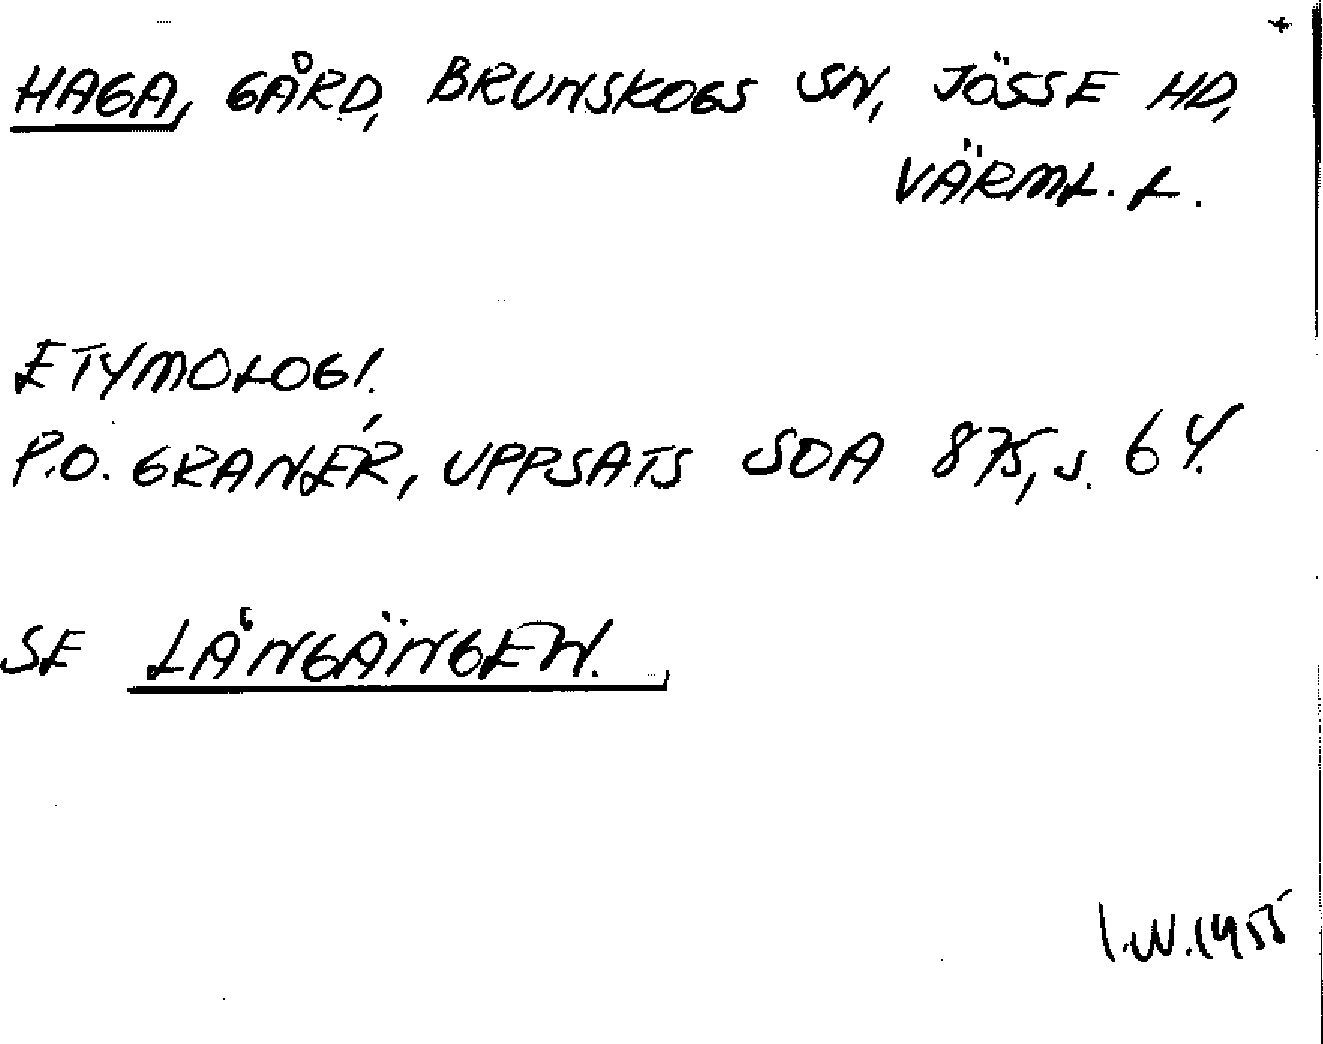 HAGA, GÅRD, BRUNSKOGS SN, JÖSSE HD,
VÄRML. L.
ETYMOLOGI.
P.O. GRANÉR, UPPSATS SOA 875, s. 64.
SE LÅNGÄNGEN.
I.W. 1955